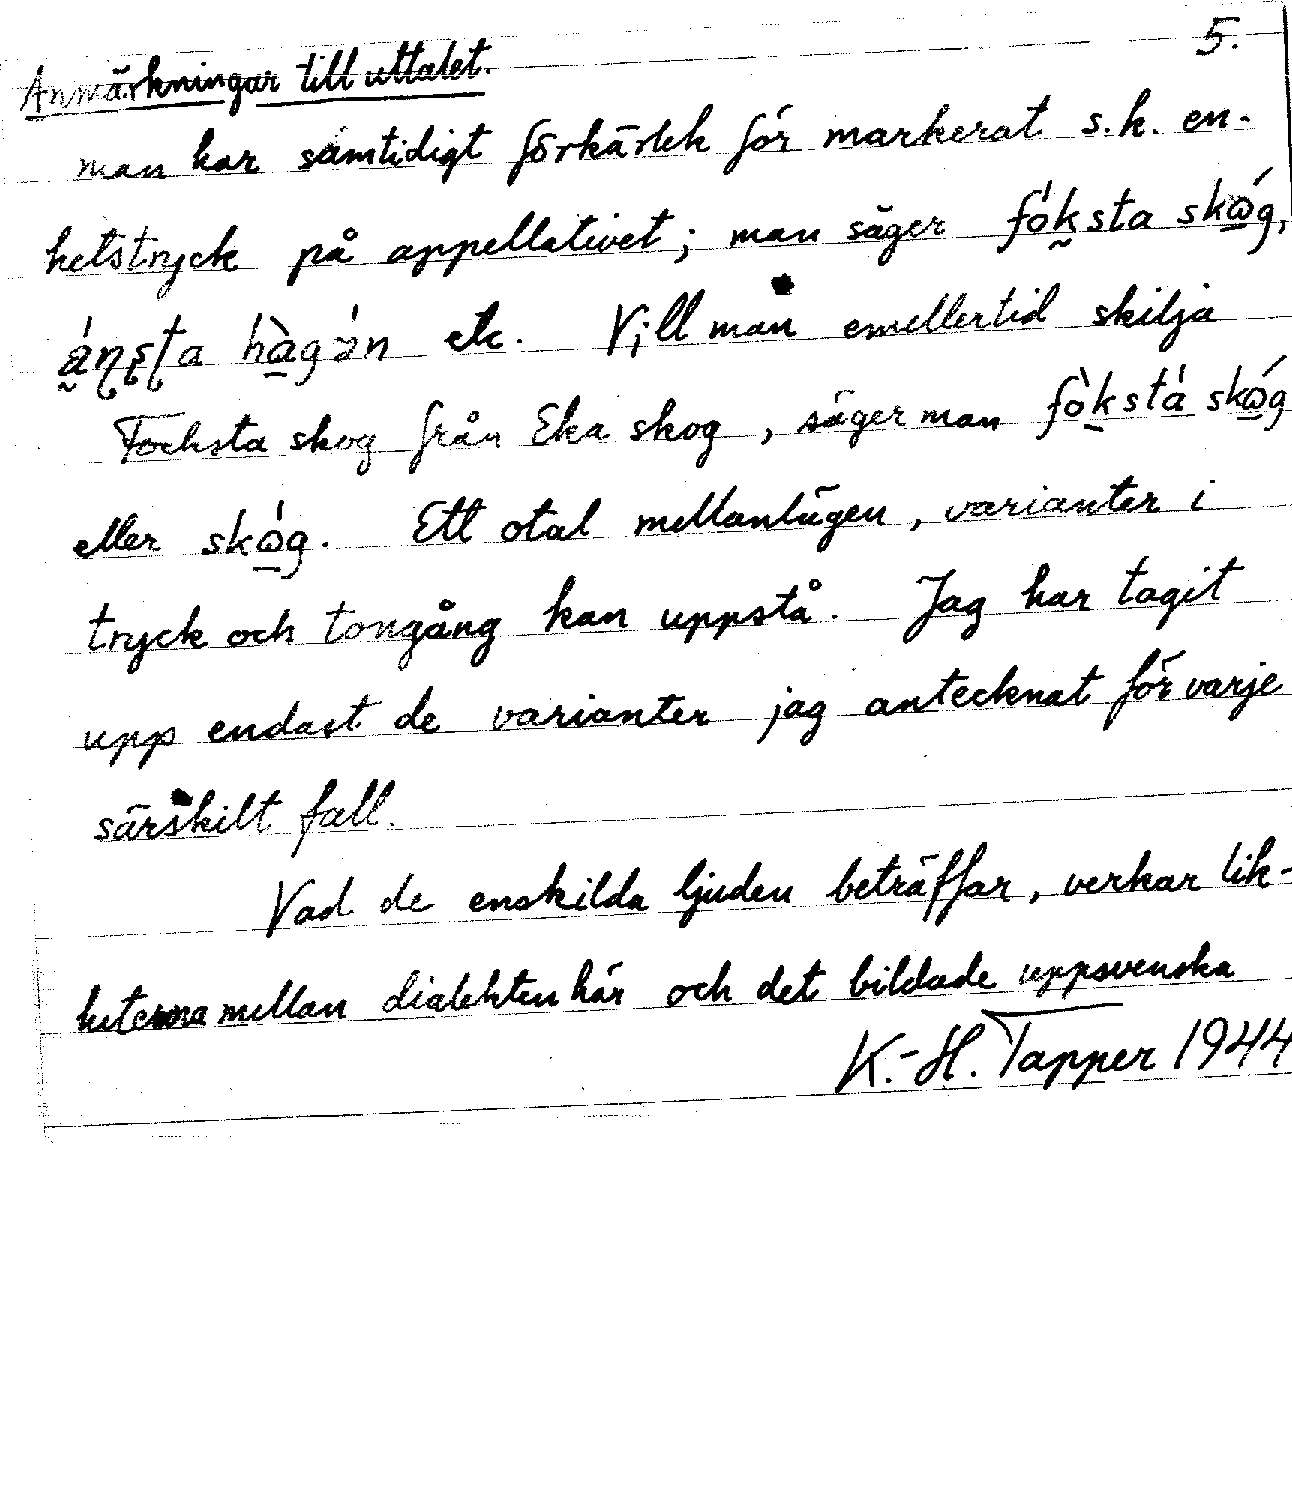 5.
Anmärkningar till uttalet.
man har samtidigt förkärlek för markerat s.k. en-
hetstryck på appellativet; man säger fók̰sta skɷ́g,
etc. Vill man emellertid skilja
Focksta skog från Eka skog, säger man fòkstá skɷ́g
eller skɷ́g. Ett otal mellanlägen, varianter i
tryck och tongång kan uppstå. Jag har tagit
upp endast de varianter jag antecknat för varje
särskilt fall.
Vad de enskilda ljuden beträffar, verkar lik-
heterna mellan dialekten här och det bildade uppsvenska
K.-H. Tapper 1944